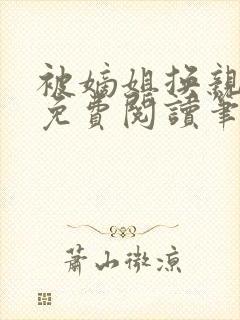 被嫡姐换親
免費閱讀筆
蕭山微涼